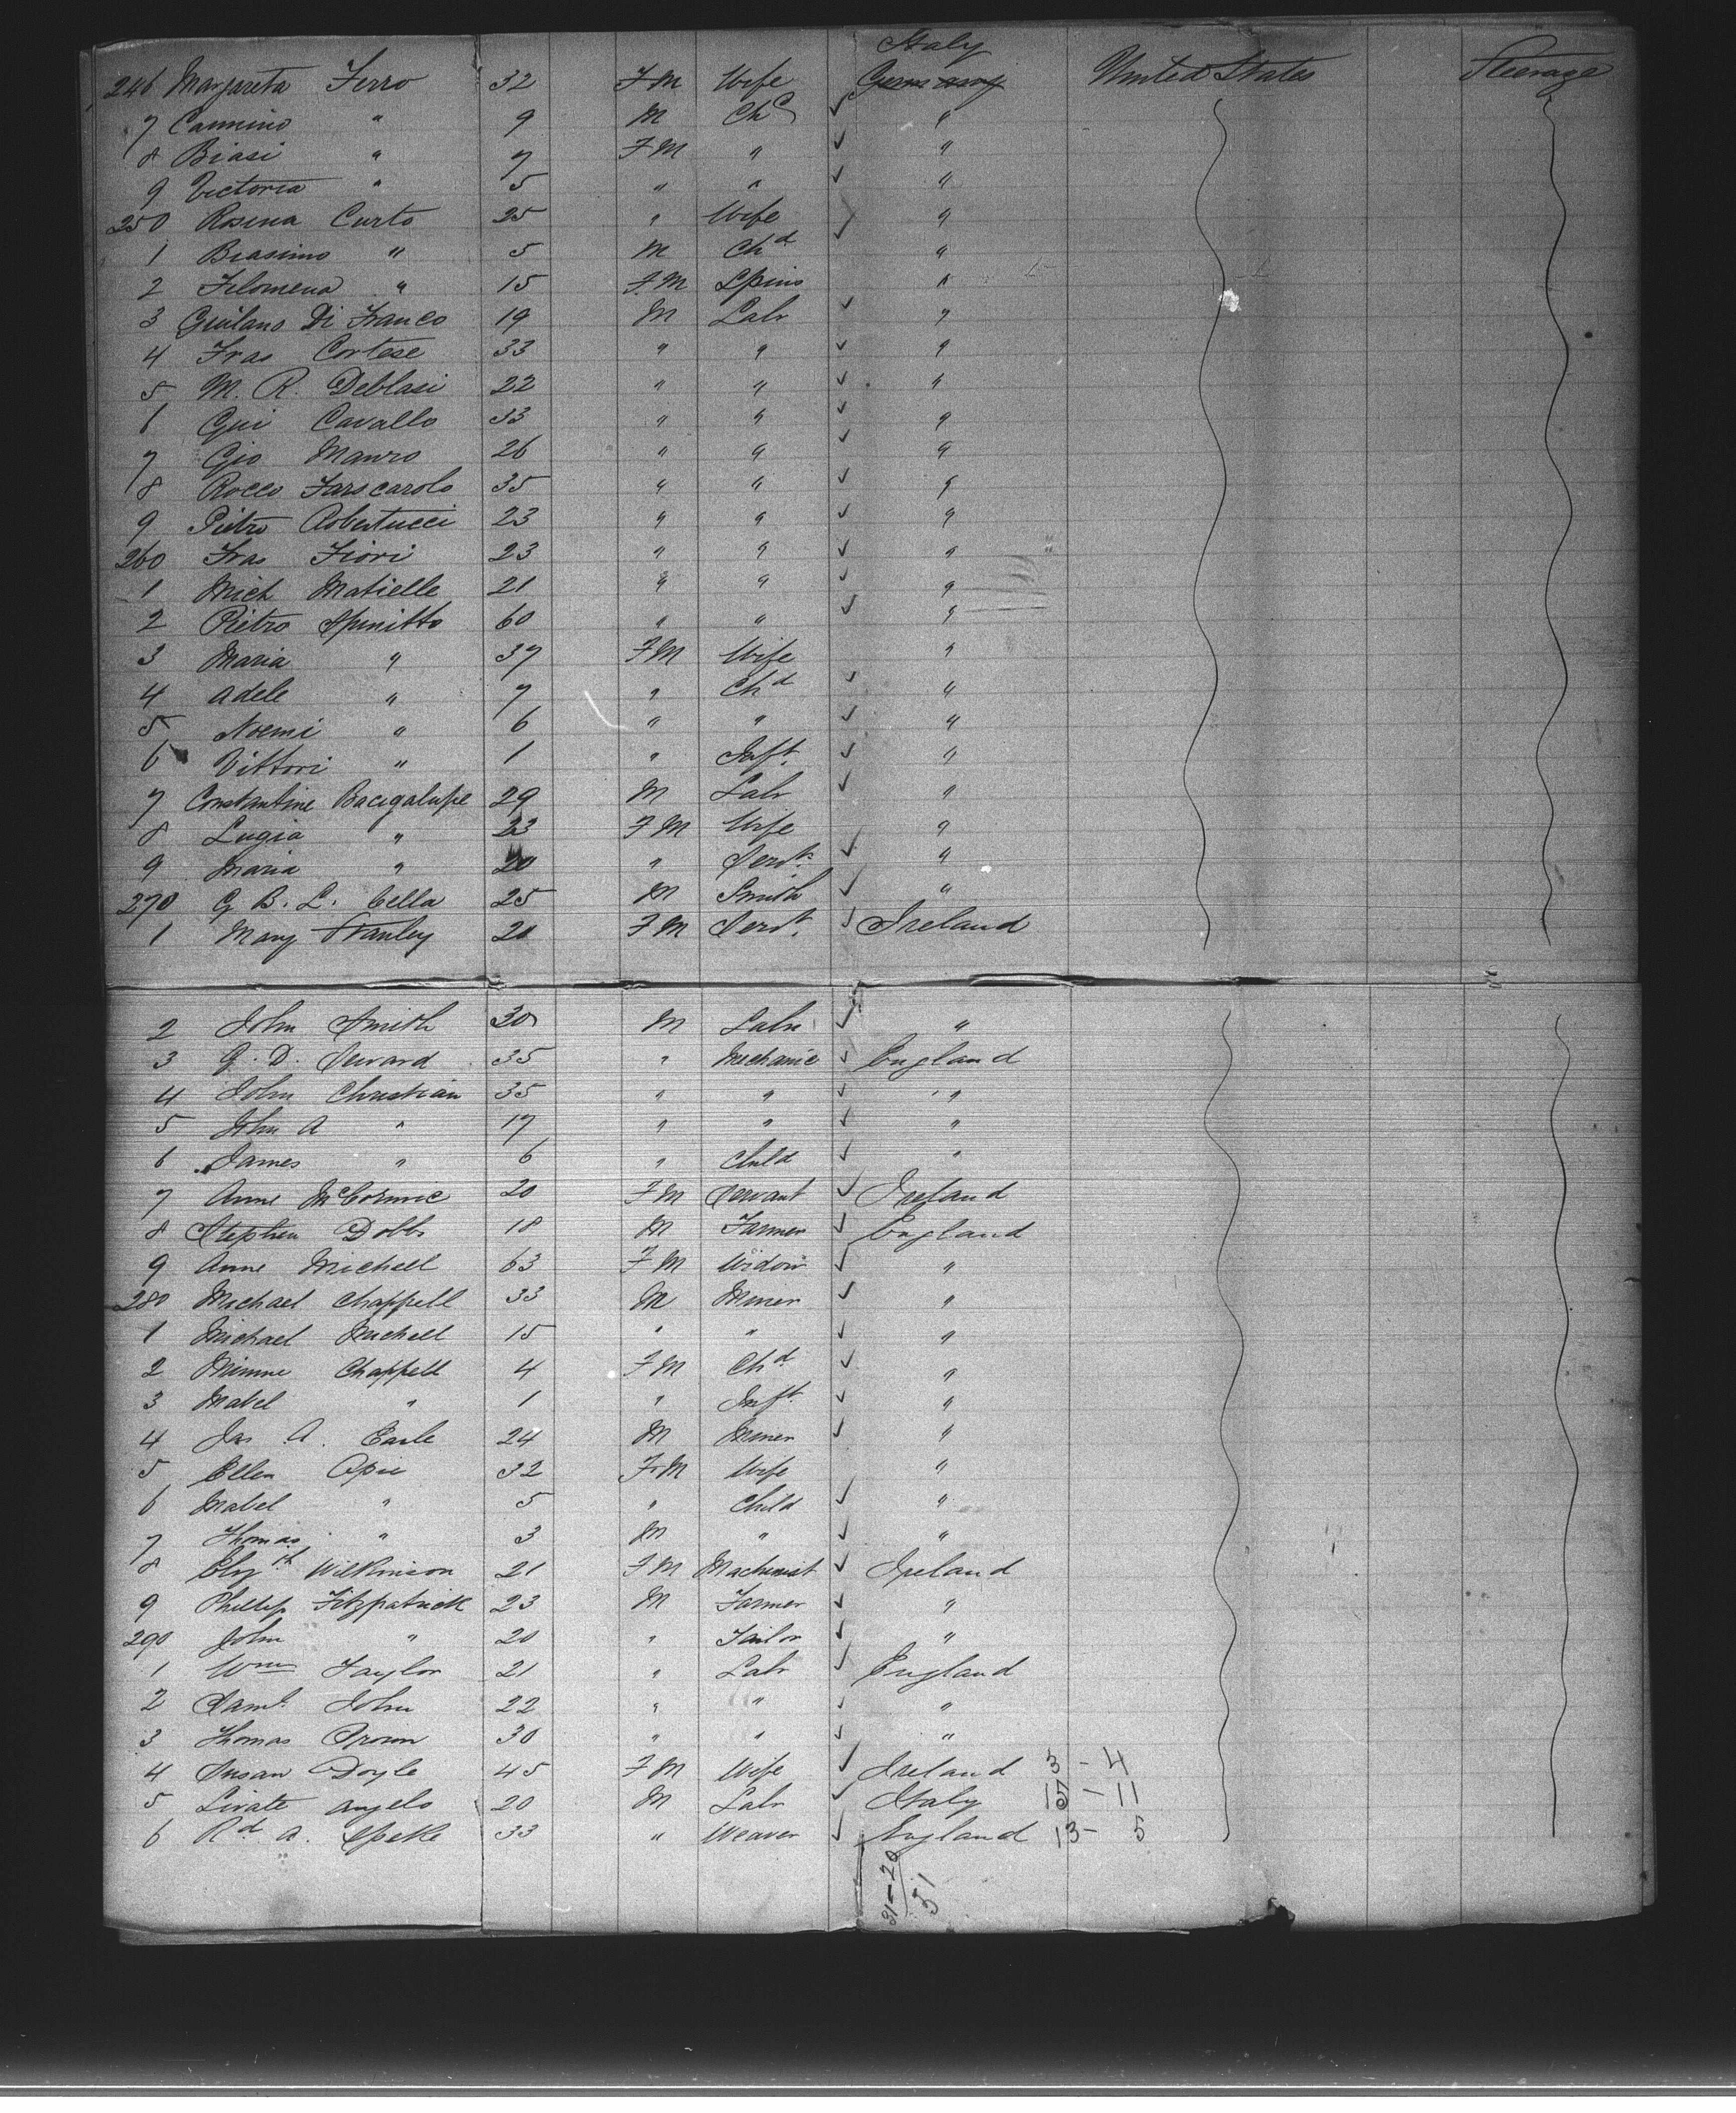 Italy
246 Margareta Ferro 32 F M Wife Germany United States Steerage
7 Carmino " 9 M Chd ✓ "
8 Biasi " 7 F M " ✓ "
9 Victoria " 5 " " ✓ "
250 Rosina Curto 25 " Wife ✓ "
1 Biasimo " 5 M Chd ✓ "
2 Filomena " 15 F M Spins "
3 Guilano Di Franco 19 M Labr ✓ "
4 Fras Cortese 33 " " ✓ "
5 M. R. Deblasi 22 " " ✓ "
6 Gui Cavallo 33 " " ✓ "
7 Gio Mauro 26 " " ✓ "
8 Rocco Farscarolo 35 " " ✓ "
9 Pietro Robertucci 23 " " ✓ "
260 Fras Fiori 23 " " ✓ "
1 Mich Matielle 21 " " ✓ "
2 Pietro Spinitto 60 " " ✓ "
3 Maria " 37 F M Wife "
4 Adele " 7 " Chd ✓ "
5 Noemi " 6 " " ✓ "
6 Vittori " 1 " Inft. ✓ "
7 Constantine Bacigalupe 29 M Labr ✓ "
8 Lugia " 23 F M Wife "
9 Maria " 20 " Servt. ✓ "
270 G. B. L. Cella 25 M Smith ✓ "
1 Mary Stanley 20 F M Servt. ✓ Ireland
2 John Smith 30 M Labr ✓ "
3 G. D. Seward 35 " Mechanic ✓ England
4 John Christian 35 " " ✓ "
5 John A " 17 " " ✓ "
6 James " 6 " Child ✓ "
7 Anne McCormic 20 F M Servant ✓ Ireland
8 Stephen Dobbs 18 M Farmer ✓ England
9 Anne Michell 63 F M Widow ✓ "
280 Michael Chappell 33 M Miner ✓ "
1 Michael Michell 15 " " ✓ "
2 Minnie Chappell 4 F M Chd ✓ "
3 Mabel " 1 " Inft. ✓ "
4 Jas A. Earle 24 M Miner ✓ "
5 Ellen Opie 32 F M Wife "
6 Mabel " 5 " Child ✓ "
7 Thomas " 3 M " ✓ "
8 Elizth Wilkinson 21 F M Machinist ✓ Ireland
9 Phillip Fitzpatrick 23 M Farmer ✓ "
290 John " 20 " Tailor ✓ "
1 Wm Taylor 21 " Labr ✓ England
2 Saml. John 22 " " ✓ "
3 Thomas 30 " " ✓ "
4 Susan Doyle 45 F M Wife ✓ Ireland 3 - 4
5 Livate Angelo 20 M Labr ✓ Italy 15 - 11
6 Rd A. Speke 33 " Weaver ✓ England 13 - 5
31 - 20
51